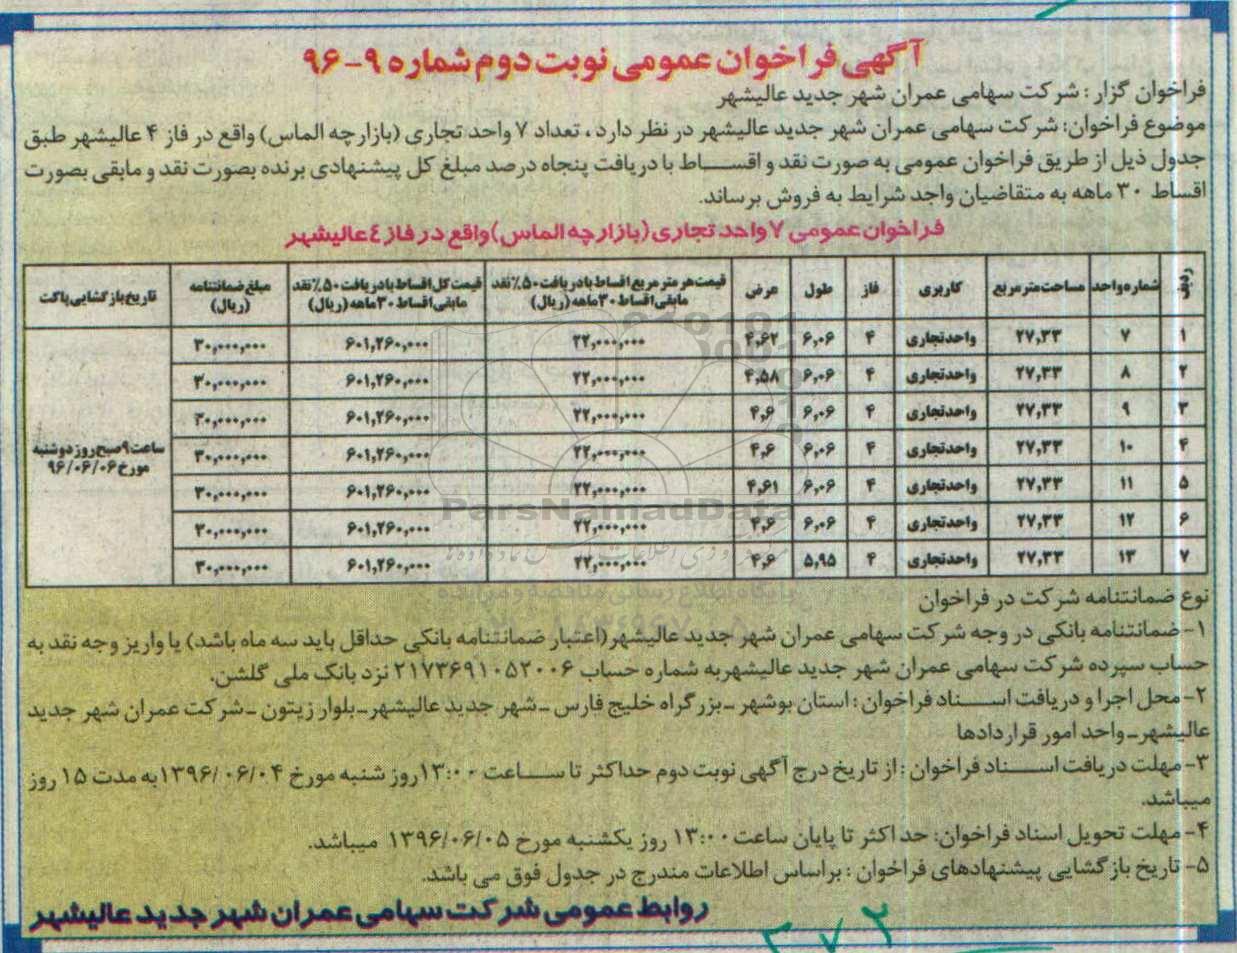 آگهی فراخوان عمومی نوبت دوم شماره ۹-۹۶
فراخوان گزار : شرکت سهامی عمران شهر جدید عالیشهر
موضوع فراخوان: شرکت سهامی عمران شهر جدید عالیشهر در نظر دارد ، تعداد ۷ واحد تجاری (بازارچه الماس) واقع در فاز ۴ عالیشهر طبق
جدول ذیل از طریق فراخوان عمومی به صورت نقد و اقساط با دریافت پنجاه درصد مبلغ کل پیشنهادی برنده بصورت نقد و مابقی بصورت
اقساط ۳۰ ماهه به متقاضیان واجد شرایط به فروش برساند.
فراخوان عمومی ۷ واحد تجاری (بازارچه الماس) واقع در فاز ٤ عالیشهر
ردیف شماره واحد مساحت مترمربع کاربری فاز طول عرض قیمت هر متر مربع اقساط با دریافت ۵۰٪ نقد مابقی اقساط ۳۰ ماهه (ریال) قیمت کل اقساط با دریافت ۵۰٪ نقد مابقی اقساط ۳۰ ماهه (ریال) مبلغ ضمانتنامه (ریال) تاریخ بازگشایی پاکت
۱ ۷ ۲۷,۳۳ واحد تجاری ۴ ۶,۰۶ ۴,۶۲ ۲۲,۰۰۰,۰۰۰ ۶۰۱,۲۶۰,۰۰۰ ۳۰,۰۰۰,۰۰۰
۲ ۸ ۲۷,۳۳ واحد تجاری ۴ ۶,۰۶ ۴,۵۸ ۲۲,۰۰۰,۰۰۰ ۶۰۱,۲۶۰,۰۰۰ ۳۰,۰۰۰,۰۰۰
۳ ۹ ۲۷,۳۳ واحد تجاری ۴ ۶,۰۶ ۴,۶ ۲۲,۰۰۰,۰۰۰ ۶۰۱,۲۶۰,۰۰۰ ۳۰,۰۰۰,۰۰۰
۴ ۱۰ ۲۷,۳۳ واحد تجاری ۴ ۶,۰۶ ۴,۶ ۲۲,۰۰۰,۰۰۰ ۶۰۱,۲۶۰,۰۰۰ ۳۰,۰۰۰,۰۰۰
ساعت ۹ صبح روز دوشنبه
مورخ ۹۶/۰۶/۰۶
۵ ۱۱ ۲۷,۳۳ واحد تجاری ۴ ۶,۰۶ ۴,۶۱ ۲۲,۰۰۰,۰۰۰ ۶۰۱,۲۶۰,۰۰۰ ۳۰,۰۰۰,۰۰۰
۶ ۱۲ ۲۷,۳۳ واحد تجاری ۴ ۶,۰۶ ۴,۶ ۲۲,۰۰۰,۰۰۰ ۶۰۱,۲۶۰,۰۰۰ ۳۰,۰۰۰,۰۰۰
۷ ۱۳ ۲۷,۳۳ واحد تجاری ۴ ۵,۹۵ ۴,۶ ۲۲,۰۰۰,۰۰۰ ۶۰۱,۲۶۰,۰۰۰ ۳۰,۰۰۰,۰۰۰
ParsNamadData
پایگاه اطلاع رسانی مناقصه و مزایده
نوع ضمانتنامه شرکت در فراخوان
۱- ضمانتنامه بانکی در وجه شرکت سهامی عمران شهر جدید عالیشهر(اعتبار ضمانتنامه بانکی حداقل باید سه ماه باشد) یا واریز وجه نقد به
حساب سپرده شرکت سهامی عمران شهر جدید عالیشهربه شماره حساب ۲۱۷۳۶۹۱۰۵۲۰۰۶ نزد بانک ملی گلشن.
۲- محل اجرا و دریافت اسناد فراخوان : استان بوشهر -بزرگراه خلیج فارس -شهر جدید عالیشهر-بلوار زیتون -شرکت عمران شهر جدید
عالیشهر-واحد امور قراردادها
۳- مهلت دریافت اسناد فراخوان : از تاریخ درج آگهی نوبت دوم حداکثر تا ساعت ۱۳:۰۰روز شنبه مورخ ۱۳۹۶/۰۶/۰۴به مدت ۱۵ روز
میباشد.
۴- مهلت تحویل اسناد فراخوان: حداکثر تا پایان ساعت ۱۳:۰۰ روز یکشنبه مورخ ۱۳۹۶/۰۶/۰۵ میباشد.
۵- تاریخ بازگشایی پیشنهادهای فراخوان : براساس اطلاعات مندرج در جدول فوق می باشد.
روابط عمومی شرکت سهامی عمران شهر جدید عالیشهر
۲۷۲